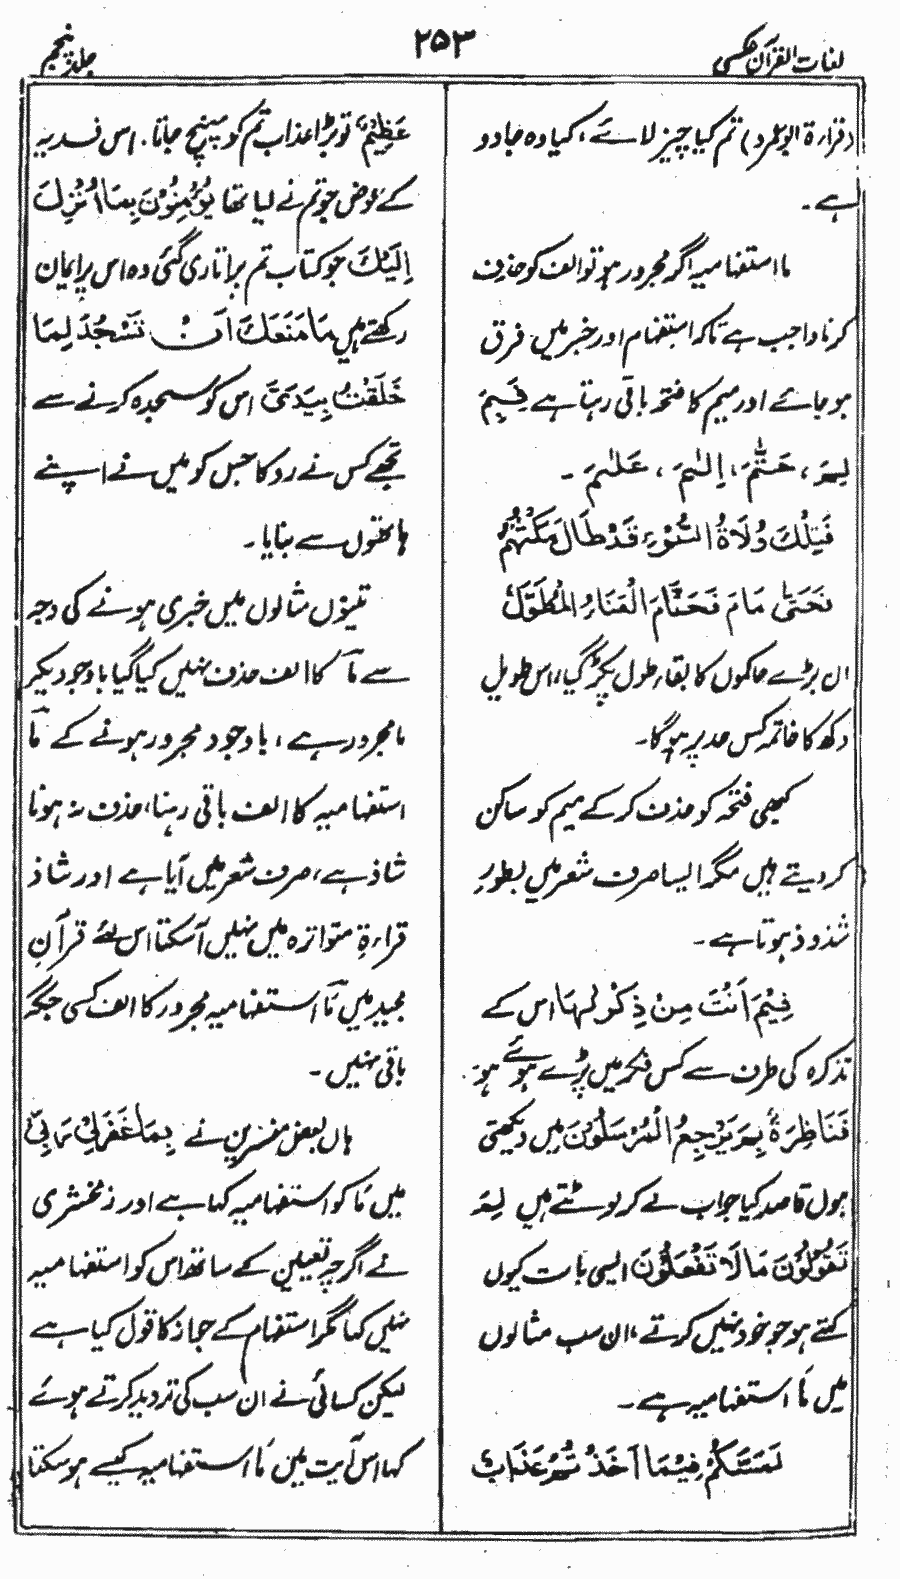 لغات القرآن عکسی
۲۵۳
جلد پنجم
(قراءۃ ابو عمرو) تم کیا چیز لائے، کیا وہ جادو
ہے۔
ما استفہامیہ اگر مجرور ہو تو الف کو حذف
کرنا واجب ہے تاکہ استفہام اور خبر میں فرق
ہو جائے اور میم کا فتحہ باقی رہتا ہے فِیْمَ
لِمَ، حَتّٰمَ، اِلٰمَ، عَلٰمَ۔
فَتِلْكَ وُلَاةُ السُّوْءِ قَدْ طَالَ مَكْثُهُمْ
فَحَتَّامَ حَتَّامَ الْعَنَاءُ الْمُطَوَّلُ
ان بڑے حاکموں کا بقاء طول پکڑ گیا، اس طویل
دکھ کا خاتمہ کس حد پر ہو گا۔
کبھی فتحہ کو حذف کر کے میم کو ساکن
کر دیتے ہیں مگر ایسا صرف شعر میں بطور
شذوذ ہوتا ہے۔
فِیْمَ اَنْتَ مِنْ ذِکْرٰىہَا اس کے
تذکرہ کی طرف سے کس فکر میں پڑے ہوئے ہو
فَنَاظِرَةٌ بِمَ يَرْجِعُ الْمُرْسَلُوْنَ میں دیکھتی
ہوں قاصد کیا جواب لے کر لوٹتے ہیں لِمَ
تَقُوْلُوْنَ مَا لَا تَفْعَلُوْنَ ایسی بات کیوں
کہتے ہو جو خود نہیں کرتے، ان سب مثالوں
میں مَا استفہامیہ ہے۔
لَمَسَّكُمْ فِيْمَا اَخَذْتُمْ عَذَابٌ
عَظِيْمٌ تو بڑا عذاب تم کو پہنچ جاتا۔ اس فدیہ
کے عوض جو تم نے لیا تھا يُؤْمِنُوْنَ بِمَا اُنْزِلَ
اِلَيْكَ جو کتاب تم پر اتاری گئی وہ اس پر ایمان
رکھتے ہیں مَا مَنَعَكَ اَنْ تَسْجُدَ لِمَا
خَلَقْتُ بِيَدَیَّ اس کو سجدہ کرنے سے
تجھے کس نے روکا جس کو میں نے اپنے
ہاتھوں سے بنایا۔
تینوں مثالوں میں خبری ہونے کی وجہ
سے مَا کا الف حذف نہیں کیا گیا باوجودیکہ
ما مجرور ہے، باوجود مجرور ہونے کے مَا
استفہامیہ کا الف باقی رہنا، حذف نہ ہونا
شاذ ہے، صرف شعر میں آیا ہے اور شاذ
قراءۃ متواترہ میں نہیں آسکتا اس لئے قرآن
مجید میں مَا استفہامیہ مجرور کا الف کسی جگہ
باقی نہیں۔
ہاں بعض مفسرین نے بِمَا غَفَرَ لِیْ رَبِّیْ
میں مَا کو استفہامیہ کہا ہے اور زمخشری
نے اگرچہ تعیین کے ساتھ اس کو استفہامیہ
نہیں کہا مگر استفہام کے جواز کا قول کیا ہے
لیکن کسائی نے ان سب کی تردید کرتے ہوئے
کہا اس آیت میں مَا استفہامیہ کیسے ہو سکتا